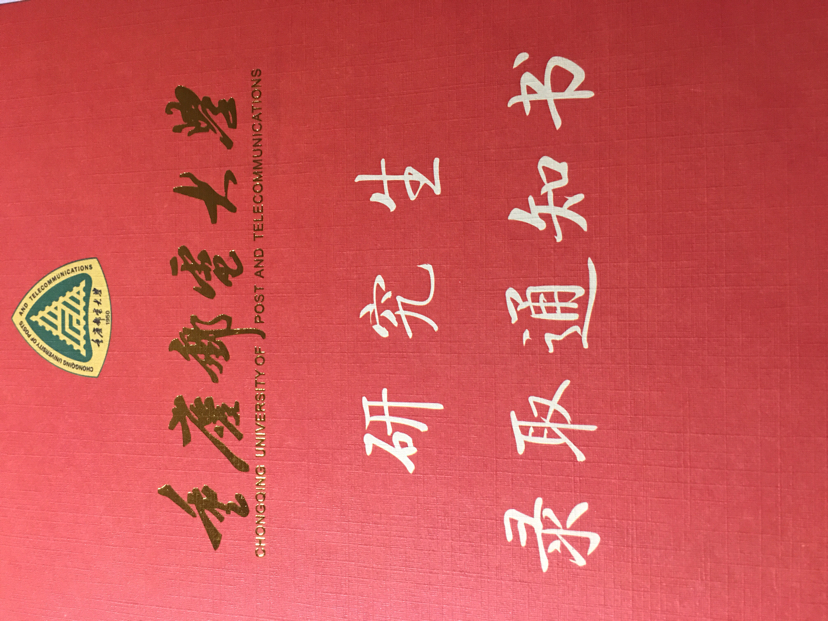 CHONGQING UNIVERSITY OF POSTS AND TELECOMMUNICATIONS
重庆邮电大学
1950
重慶郵電大學
CHONGQING UNIVERSITY OF POST AND TELECOMMUNICATIONS
研究生
录取通知书